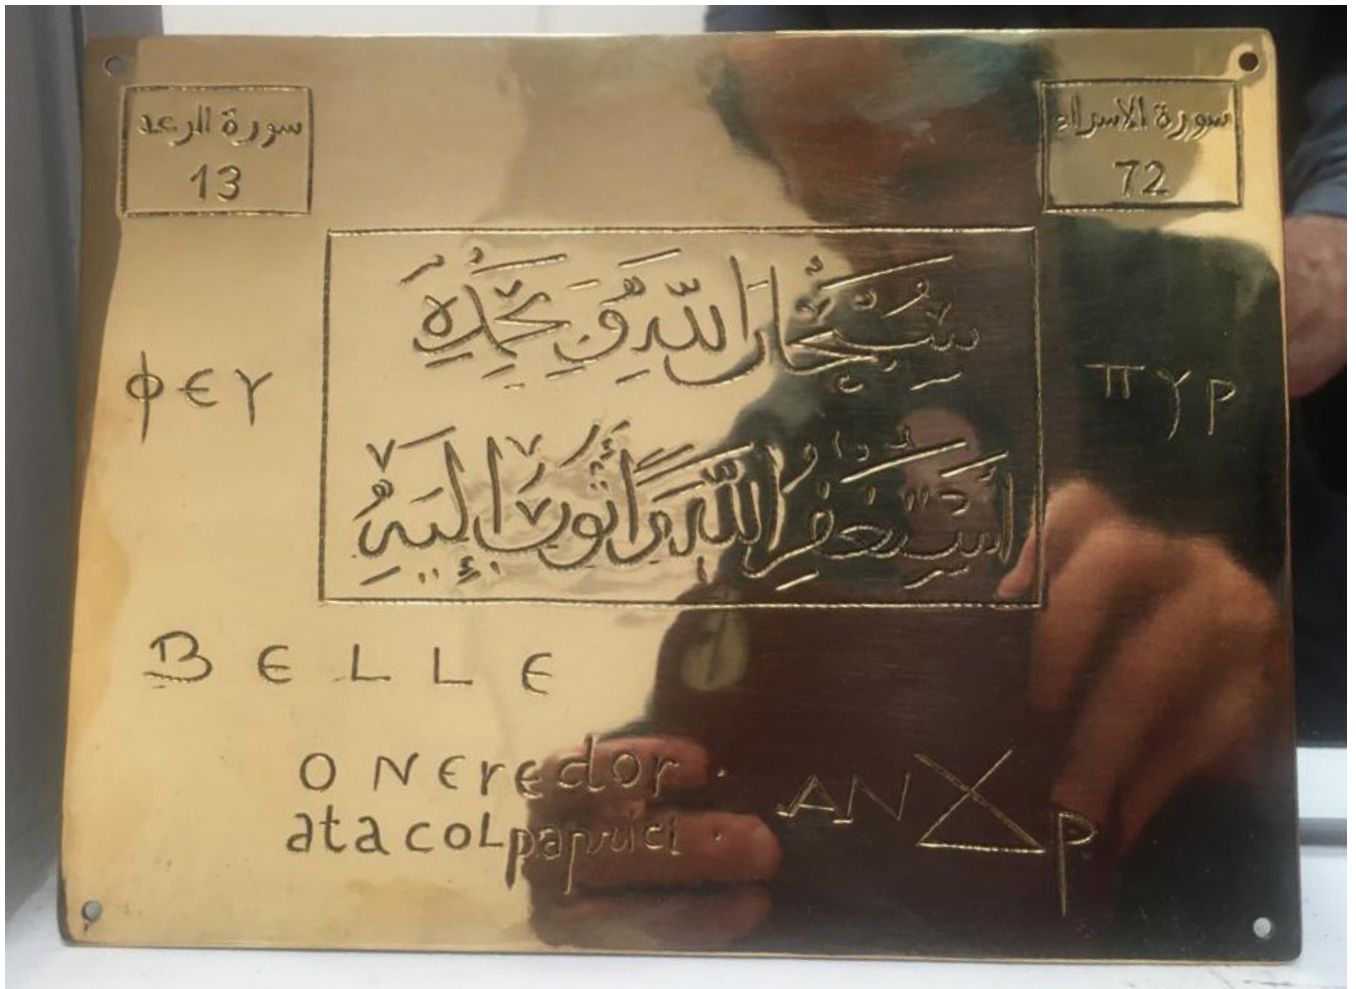 سورة الرعد
13
سورة الاسراء
72
سُبْحَانَ اللّٰهِ وَ بِحَمْدِهِ
أَسْتَغْفِرُ اللّٰهَ وَأَتُوبُ إِلَيْهِ
ϕЄΥ
πΥρ
BЄLLЄ
O NЄrЄdor.
atacoLpaprici.
AN